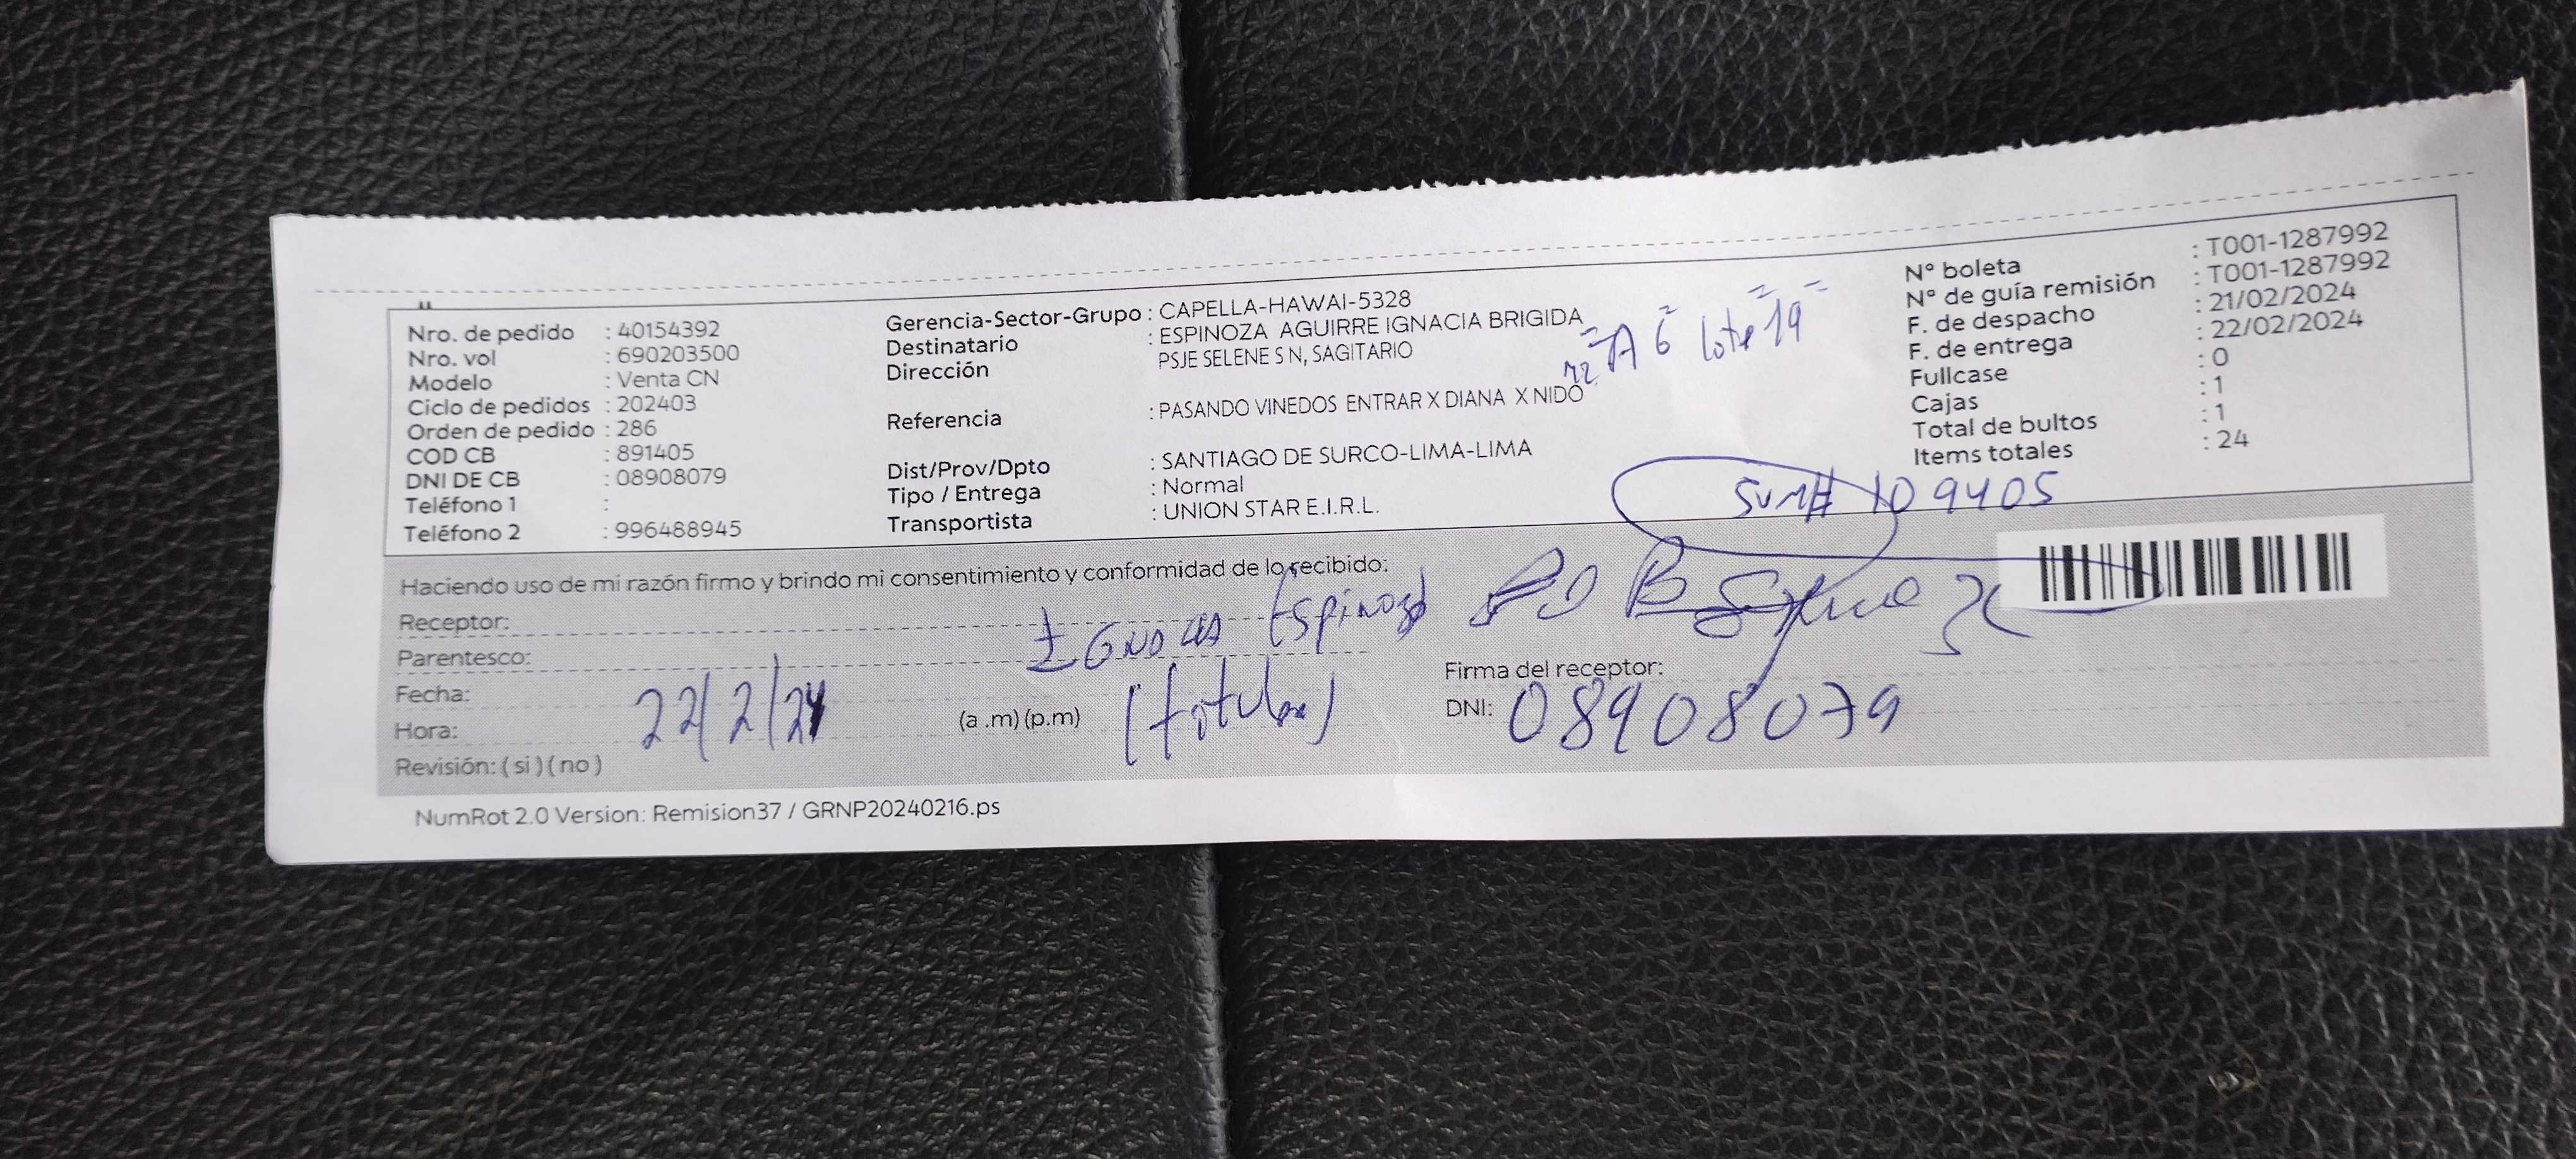 Nro. de pedido : 40154392
Nro. vol : 690203500
Modelo : Venta CN
Ciclo de pedidos : 202403
Orden de pedido : 286
COD CB : 891405
DNI DE CB : 08908079
Teléfono 1 :
Teléfono 2 : 996488945
Gerencia-Sector-Grupo : CAPELLA-HAWAI-5328
Destinatario : ESPINOZA AGUIRRE IGNACIA BRIGIDA
Dirección PSJE SELENE S N, SAGITARIO
Mz A 6 lote 19
Referencia : PASANDO VINEDOS ENTRAR X DIANA X NIDO
Dist/Prov/Dpto : SANTIAGO DE SURCO-LIMA-LIMA
Tipo / Entrega : Normal
Transportista : UNION STAR E.I.R.L.
N° boleta : T001-1287992
N° de guía remisión : T001-1287992
F. de despacho : 21/02/2024
F. de entrega : 22/02/2024
Fullcase : 0
Cajas : 1
Total de bultos : 1
Items totales : 24
109405
Haciendo uso de mi razón firmo y brindo mi consentimiento y conformidad de lo recibido:
Receptor:
Espinoza
Parentesco:
Fecha:
22/2/24
Hora: (a .m) (p.m)
(titular)
Revisión: ( si ) ( no )
Firma del receptor:
DNI: 08908079
NumRot 2.0 Version: Remision37 / GRNP20240216.ps